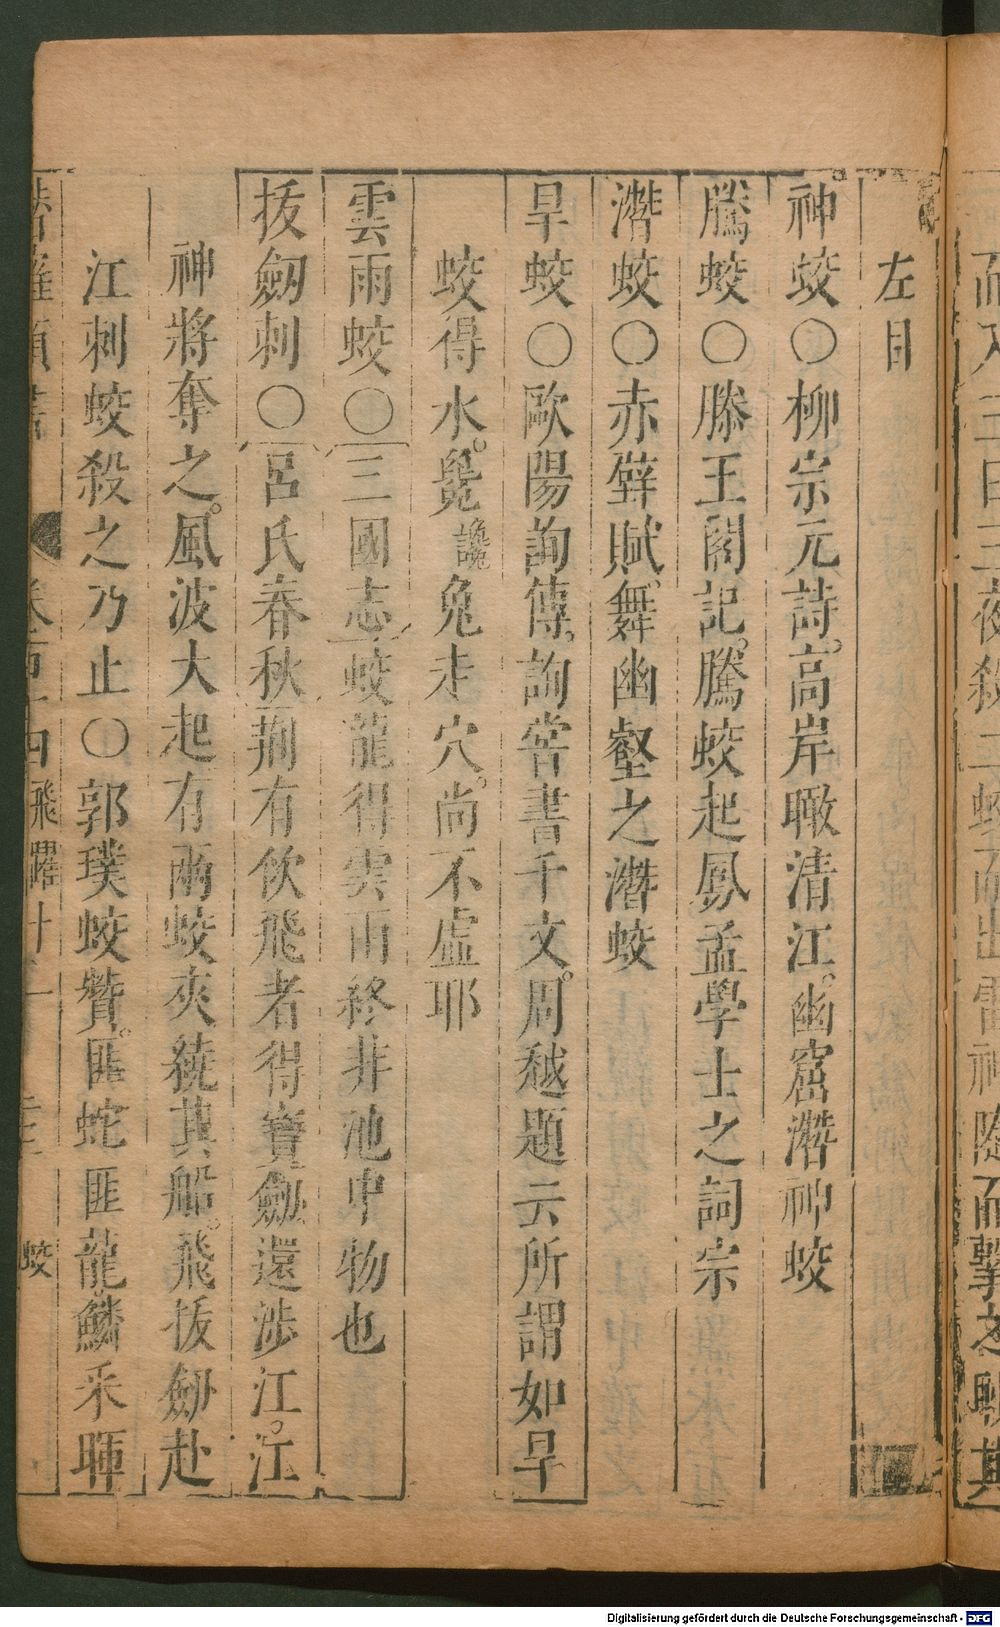 左目
神蛟○柳宗元詩高岸瞰清江幽窟潛神蛟
騰蛟○滕王閣記騰蛟起鳳孟學士之詞宗
潛蛟○赤壁賦舞幽壑之潛蛟
旱蛟○歐陽詢傳詢嘗書千文周越題云所謂如旱
蛟得水毚兔走穴尚不虛耶
雲雨蛟○三國志蛟龍得雲雨終非池中物也
拔劔刺○呂氏春秋荊有佽飛者得寶劔還涉江江
神將奪之風波大起有兩蛟夾繞其船飛拔劔赴
江刺蛟殺之乃止○郭璞蛟贊匪蛇匪龍鱗采暉
飛躍
蛟
Digitalisierung gefördert durch die Deutsche Forschungsgemeinschaft - DFG